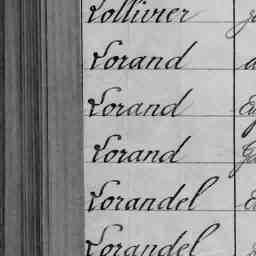 Lollivier
Lorand
Lorand
Lorand
Lorandel
Lorandel